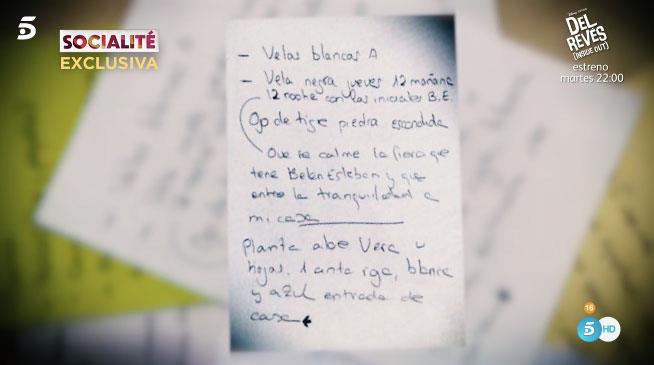 5
SOCIALITÉ
EXCLUSIVA
DEL
REVÉS
(INSIDE OUT)
estreno
martes 22:00
- Velas blancas A
- Vela negra jueves 12 mañana
12 noche con las iniciales B.E.
Ojo de tige piedra escondida
Que se calme la fiera que
tene Belen Esteban y que
entre la tranquilidad a
mi casa
Planta abe Vera u
hojas. 1 anta rga, blanca
y azul entrada de
casa
16
5 HD